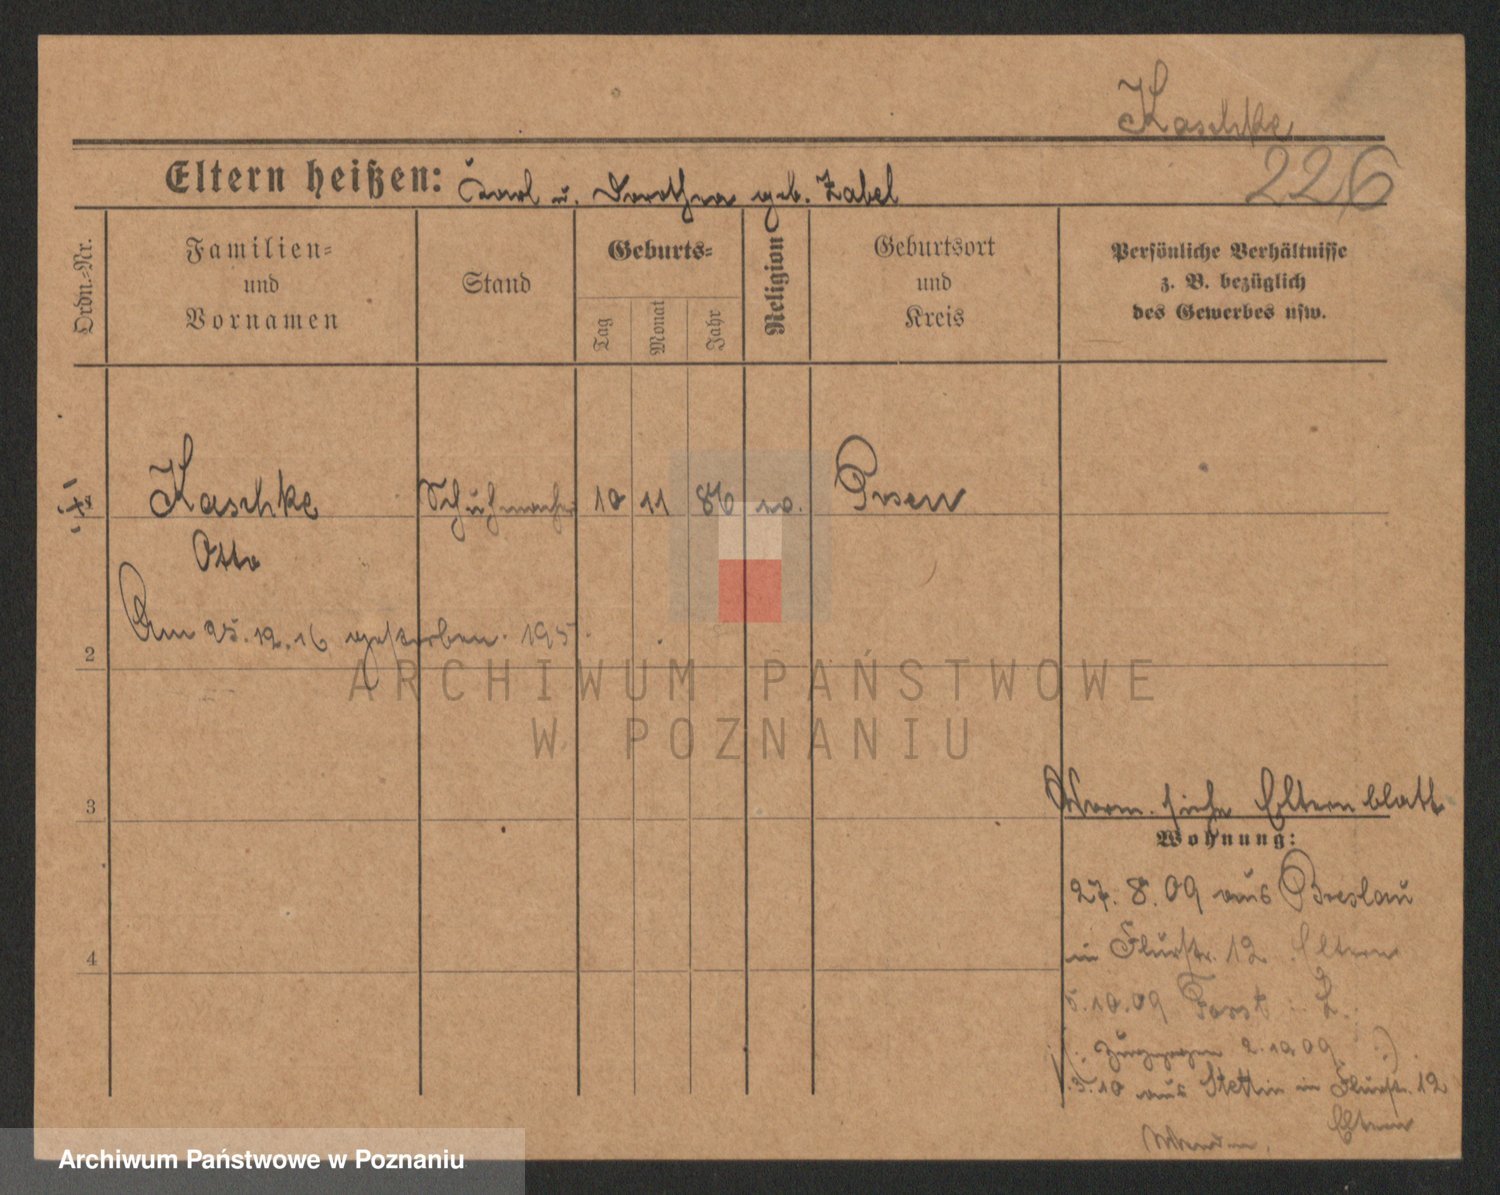 Kaschke
226
Eltern heißen: Karl u. Dorothea geb. Zabel
Ordn.-Nr.
Familien-
und
Vornamen
Stand
Geburts-
Tag
Monat
Jahr
Religion
Geburtsort
und
Kreis
Persönliche Verhältnisse
z. B. bezüglich
des Gewerbes usw.
Kaschke Schuhmacher 10 11 86 ev. Posen
Otto
Am 25.12.16 gestorben. 195
2
3
4
siehe Elternblatt
Wohnung:
27. 8. 09 aus Breslau
in Flurstr. 12 Eltern
5.10.09 Forst
(: zugezogen 2.10.09 :)
3.10 aus Stettin in Flurstr. 12
Eltern
ARCHIWUM PAŃSTWOWE
W POZNANIU
Archiwum Państwowe w Poznaniu